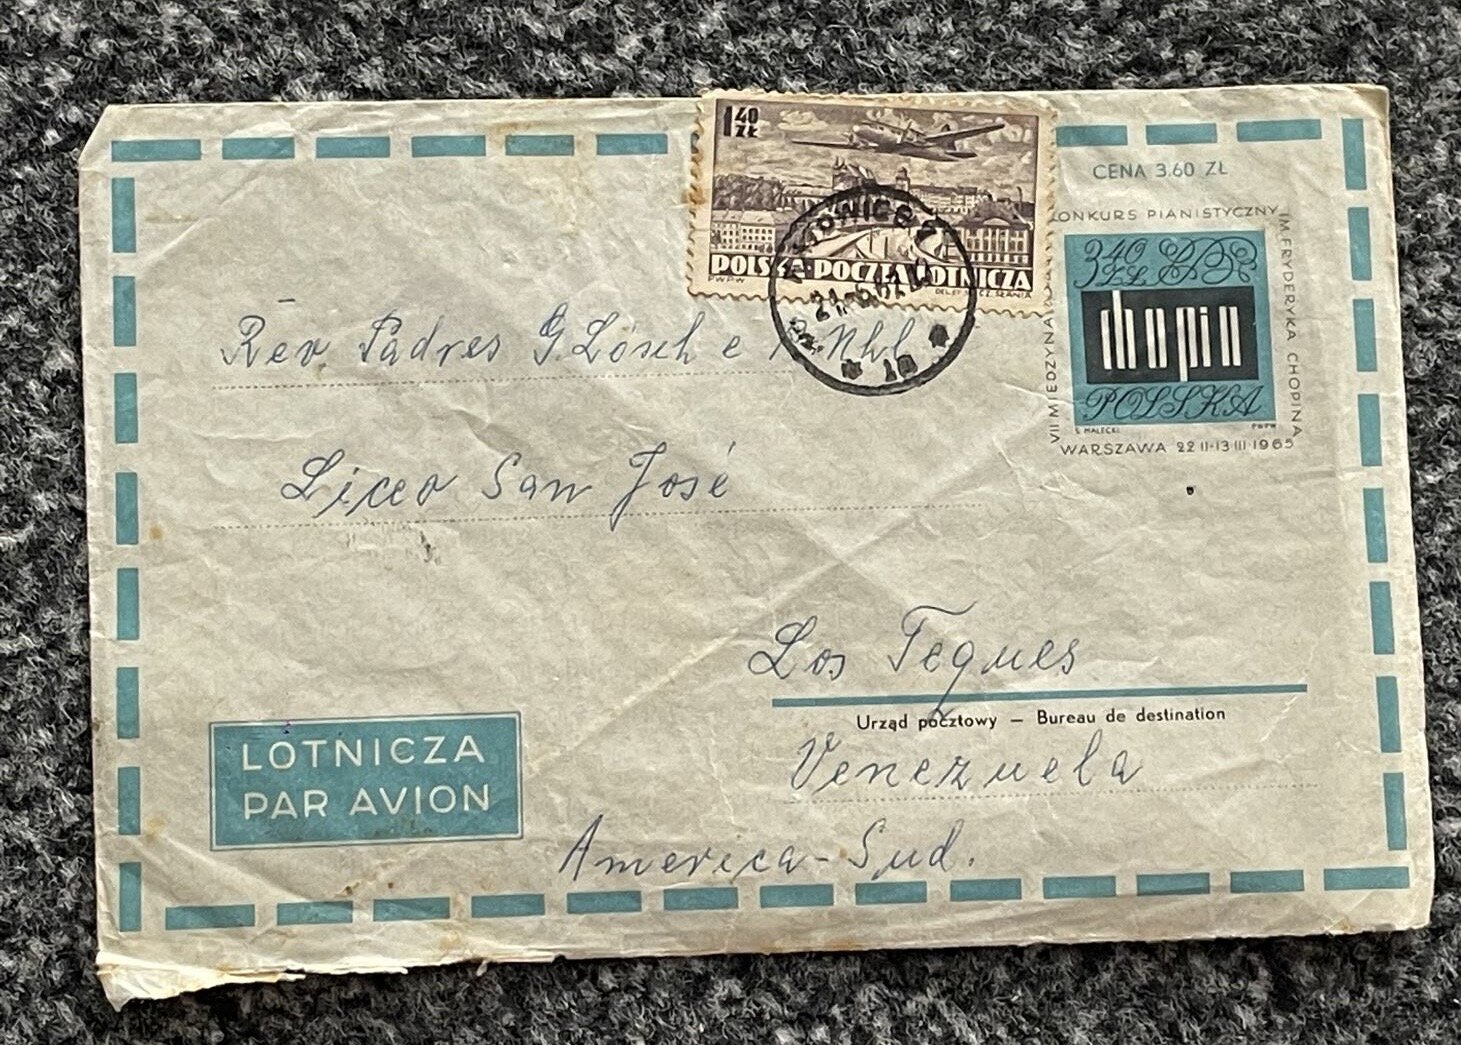 1 40 ZŁ
POLSKA · POCZTA LOTNICZA
P.W.P.W.
CENA 3.60 ZŁ
KONKURS PIANISTYCZNY
IM. FRYDERYKA CHOPINA
VII MIĘDZYNA
3,40
ZŁ
chopin
POLSKA
S. MAŁECKI PWPW
WARSZAWA 22 II-13 III 1965
KATOWICE 2
Rev. Padres G. Lösch e
Liceo San José
Los Teques
Urząd pocztowy — Bureau de destination
Venezuela
America-Sud.
LOTNICZA
PAR AVION